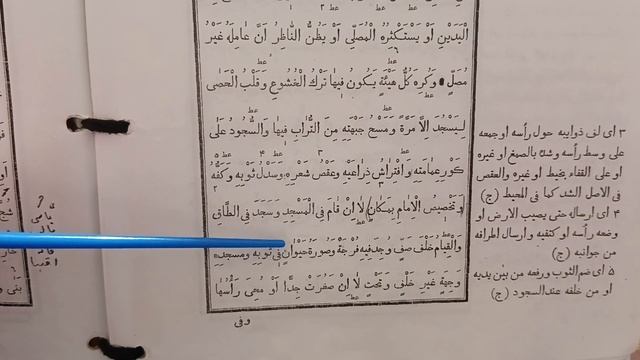 الْيَدَيْنِ اَوْ يَسْتَكْثِرُهُ الْمُصَلِّي اَوْ يَظُنُّ النَّاظِرُ اَنَّ عَامِلَهُ غَيْرُ
مُصَلٍّ وَكُرِهَ كُلُّ هَيْئَةٍ يَكُونُ فِيهَا تَرْكُ الْخُشُوعِ وَقَلْبُ الْحَصَى
لِيَسْجُدَ اِلَّا مَرَّةً وَمَسْحُ جَبْهَتِهِ مِنَ التُّرَابِ فِيهَا وَالسُّجُودُ عَلَى
كَوْرِ عِمَامَتِهِ وَافْتِرَاشُ ذِرَاعَيْهِ وَعَقْصُ شَعْرِهِ وَسَدْلُ ثَوْبِهِ وَكَفُّهُ
اَوْ تَخْصِيصُ الْاِمَامِ بِمَكَانٍ) لَا اِنْ قَامَ فِي الْمَسْجِدِ وَسَجَدَ فِي الطَّاقِ
وَالْقِيَامُ خَلْفَ صَفٍّ وَجَدَ فِيهِ فُرْجَةً وَصُورَةُ حَيَوَانٍ فِي ثَوْبِهِ وَمَسْجِدِهِ
وَجِهَةٍ غَيْرِ خَلْفٍ وَتَحْتٍ لَا اِنْ صَغُرَتْ جِدًّا اَوْ مُحِيَ رَأْسُهَا
وفى
٣ اى لف ذوابيه حول رأسه او جمعه
على وسط رأسه وشده بالصمغ او غيره
او على القفاء بخيط او غيره والعقص
فى الاصل الشد كما فى المحيط (ج)
٤ اى ارساله حتى يصيب الارض او
وضعه رأسه او كتفيه وارسال اطرافه
من جوانبه (ج)
٥ اى ضم الثوب ورفعه من بين يديه
او من خلفه عند السجود (ج)